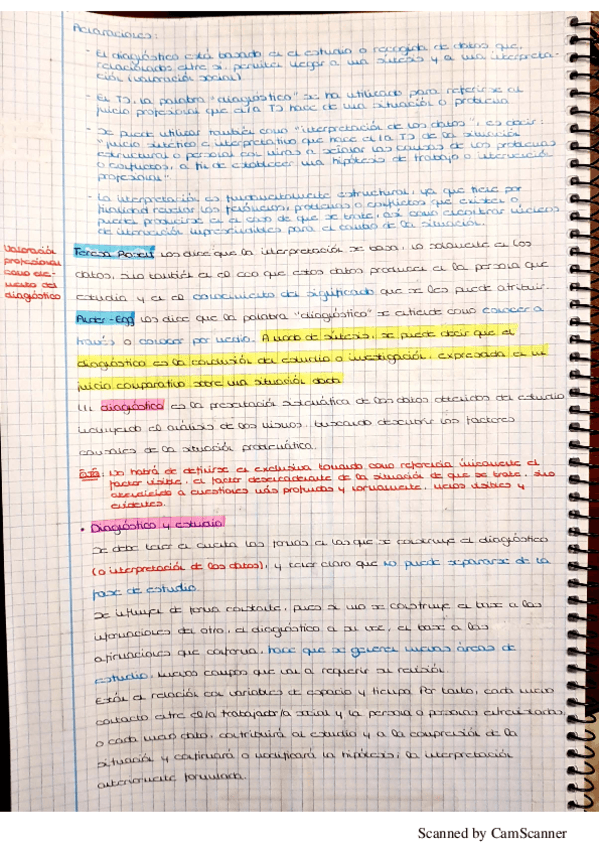 Aclaraciones:
- El diagnóstico está basado en el estudio o recogida de datos que,
relacionados entre sí, permiten llegar a una síntesis y a una interpreta-
ción (valoración social).
- El TS, la palabra "diagnóstico" se ha utilizado para referirse al
juicio profesional que el/la TS hace de una situación o problema.
- Se puede utilizar también como "interpretación de los datos", es decir:
"juicio sintético e interpretativo que hace el/la TS de la situación
estructural o personal con miras a señalar las causas de los problemas
o conflictos, a fin de establecer una hipótesis de trabajo o intervención
profesional".
- La interpretación es fundamentalmente estructural, ya que tiene por
finalidad revelar los fenómenos, problemas o conflictos que existen o
pueden producirse en el caso de que se trate, así como encontrar núcleos
de interacción imprescindibles para el cambio de la situación.
Valoración
profesional
como ele-
mento del
diagnóstico
Teresa Rosell nos dice que la interpretación se basa, no solamente en los
datos, sino también en el eco que estos datos producen en la persona que
estudia y en el conocimiento del significado que se les puede atribuir.
Ander-Egg nos dice que la palabra "diagnóstico" se entiende como conocer a
través o conocer por medio. A modo de síntesis, se puede decir que el
diagnóstico es la conclusión del estudio o investigación, expresada en un
juicio comparativo sobre una situación dada.
Un diagnóstico es la presentación sistemática de los datos obtenidos del estudio
incluyendo el análisis de los mismos, buscando descubrir los factores
causales de la situación problemática.
Nota: No habrá de definirse en exclusiva tomando como referencia únicamente el
factor visible, el factor desencadenante de la situación de que se trate, sino
atendiendo a cuestiones más profundas y normalmente, menos visibles y
evidentes.
• Diagnóstico y estudio
Se debe tener en cuenta las formas en las que se construye el diagnóstico
(o interpretación de los datos), y tener claro que no puede separarse de la
fase de estudio.
Se influyen de forma constante, pues si uno se construye en base a las
informaciones del otro, el diagnóstico a su vez, en base a las
afirmaciones que conforma, hace que se generen nuevas áreas de
estudio, nuevos campos que van a requerir su revisión.
Están en relación con variables de espacio y tiempo. Por tanto, cada nuevo
contacto entre el/la trabajador/a social y la persona o personas entrevistadas,
o cada nuevo dato, contribuirá al estudio y a la comprensión de la
situación y confirmará o modificará la hipótesis, la interpretación
anteriormente formulada.
Scanned by CamScanner